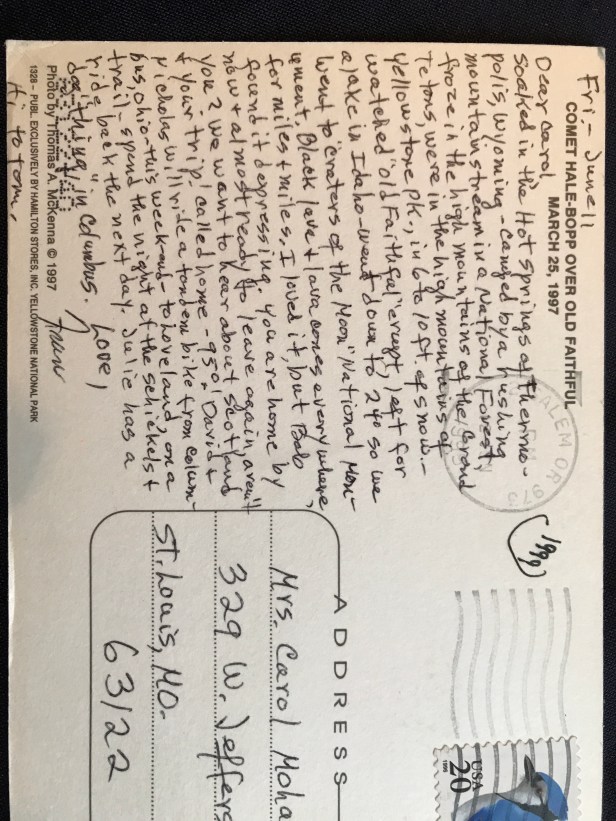 Fri. - June 11
COMET HALE-BOPP OVER OLD FAITHFUL
MARCH 25, 1997
Dear Carol
Soaked in the Hot springs of Thermo-
polis, Wyoming - camped by a rushing
mountain stream in a National Forest,
froze in the high mountains of the Grand
Tetons, were in the high mountains of
Yellowstone pk., in 6 to 10 ft. of snow. -
watched "old Faithful" erupt, left for
a lake in Idaho - went down to 24° so we
went to "craters of the Moon" National Mon-
ument. Black lava + lava cones everywhere,
for miles + miles. I loved it, but Bob
found it depressing. You are home by
now + almost ready to leave again, aren't
you? We want to hear about Scotland
+ your trip! Called home - 95°! David +
Nicholas will ride a tandem bike from Colum-
bus, Ohio - this week-end - to Loveland, on a
trail - spend the night at the Schickels +
ride back the next day. Julie has a
day "thing" in Columbus. Love,
Hi to Tom.
Photo by Thomas A. McKenna © 1997
1328 - PUBL. EXCLUSIVELY BY HAMILTON STORES, INC. YELLOWSTONE NATIONAL PARK
SALEM OR
(1999)
USA
20
1996
ADDRESS
Mrs. Carol Moha
329 W. Jeffers
St. Louis, MO.
63122